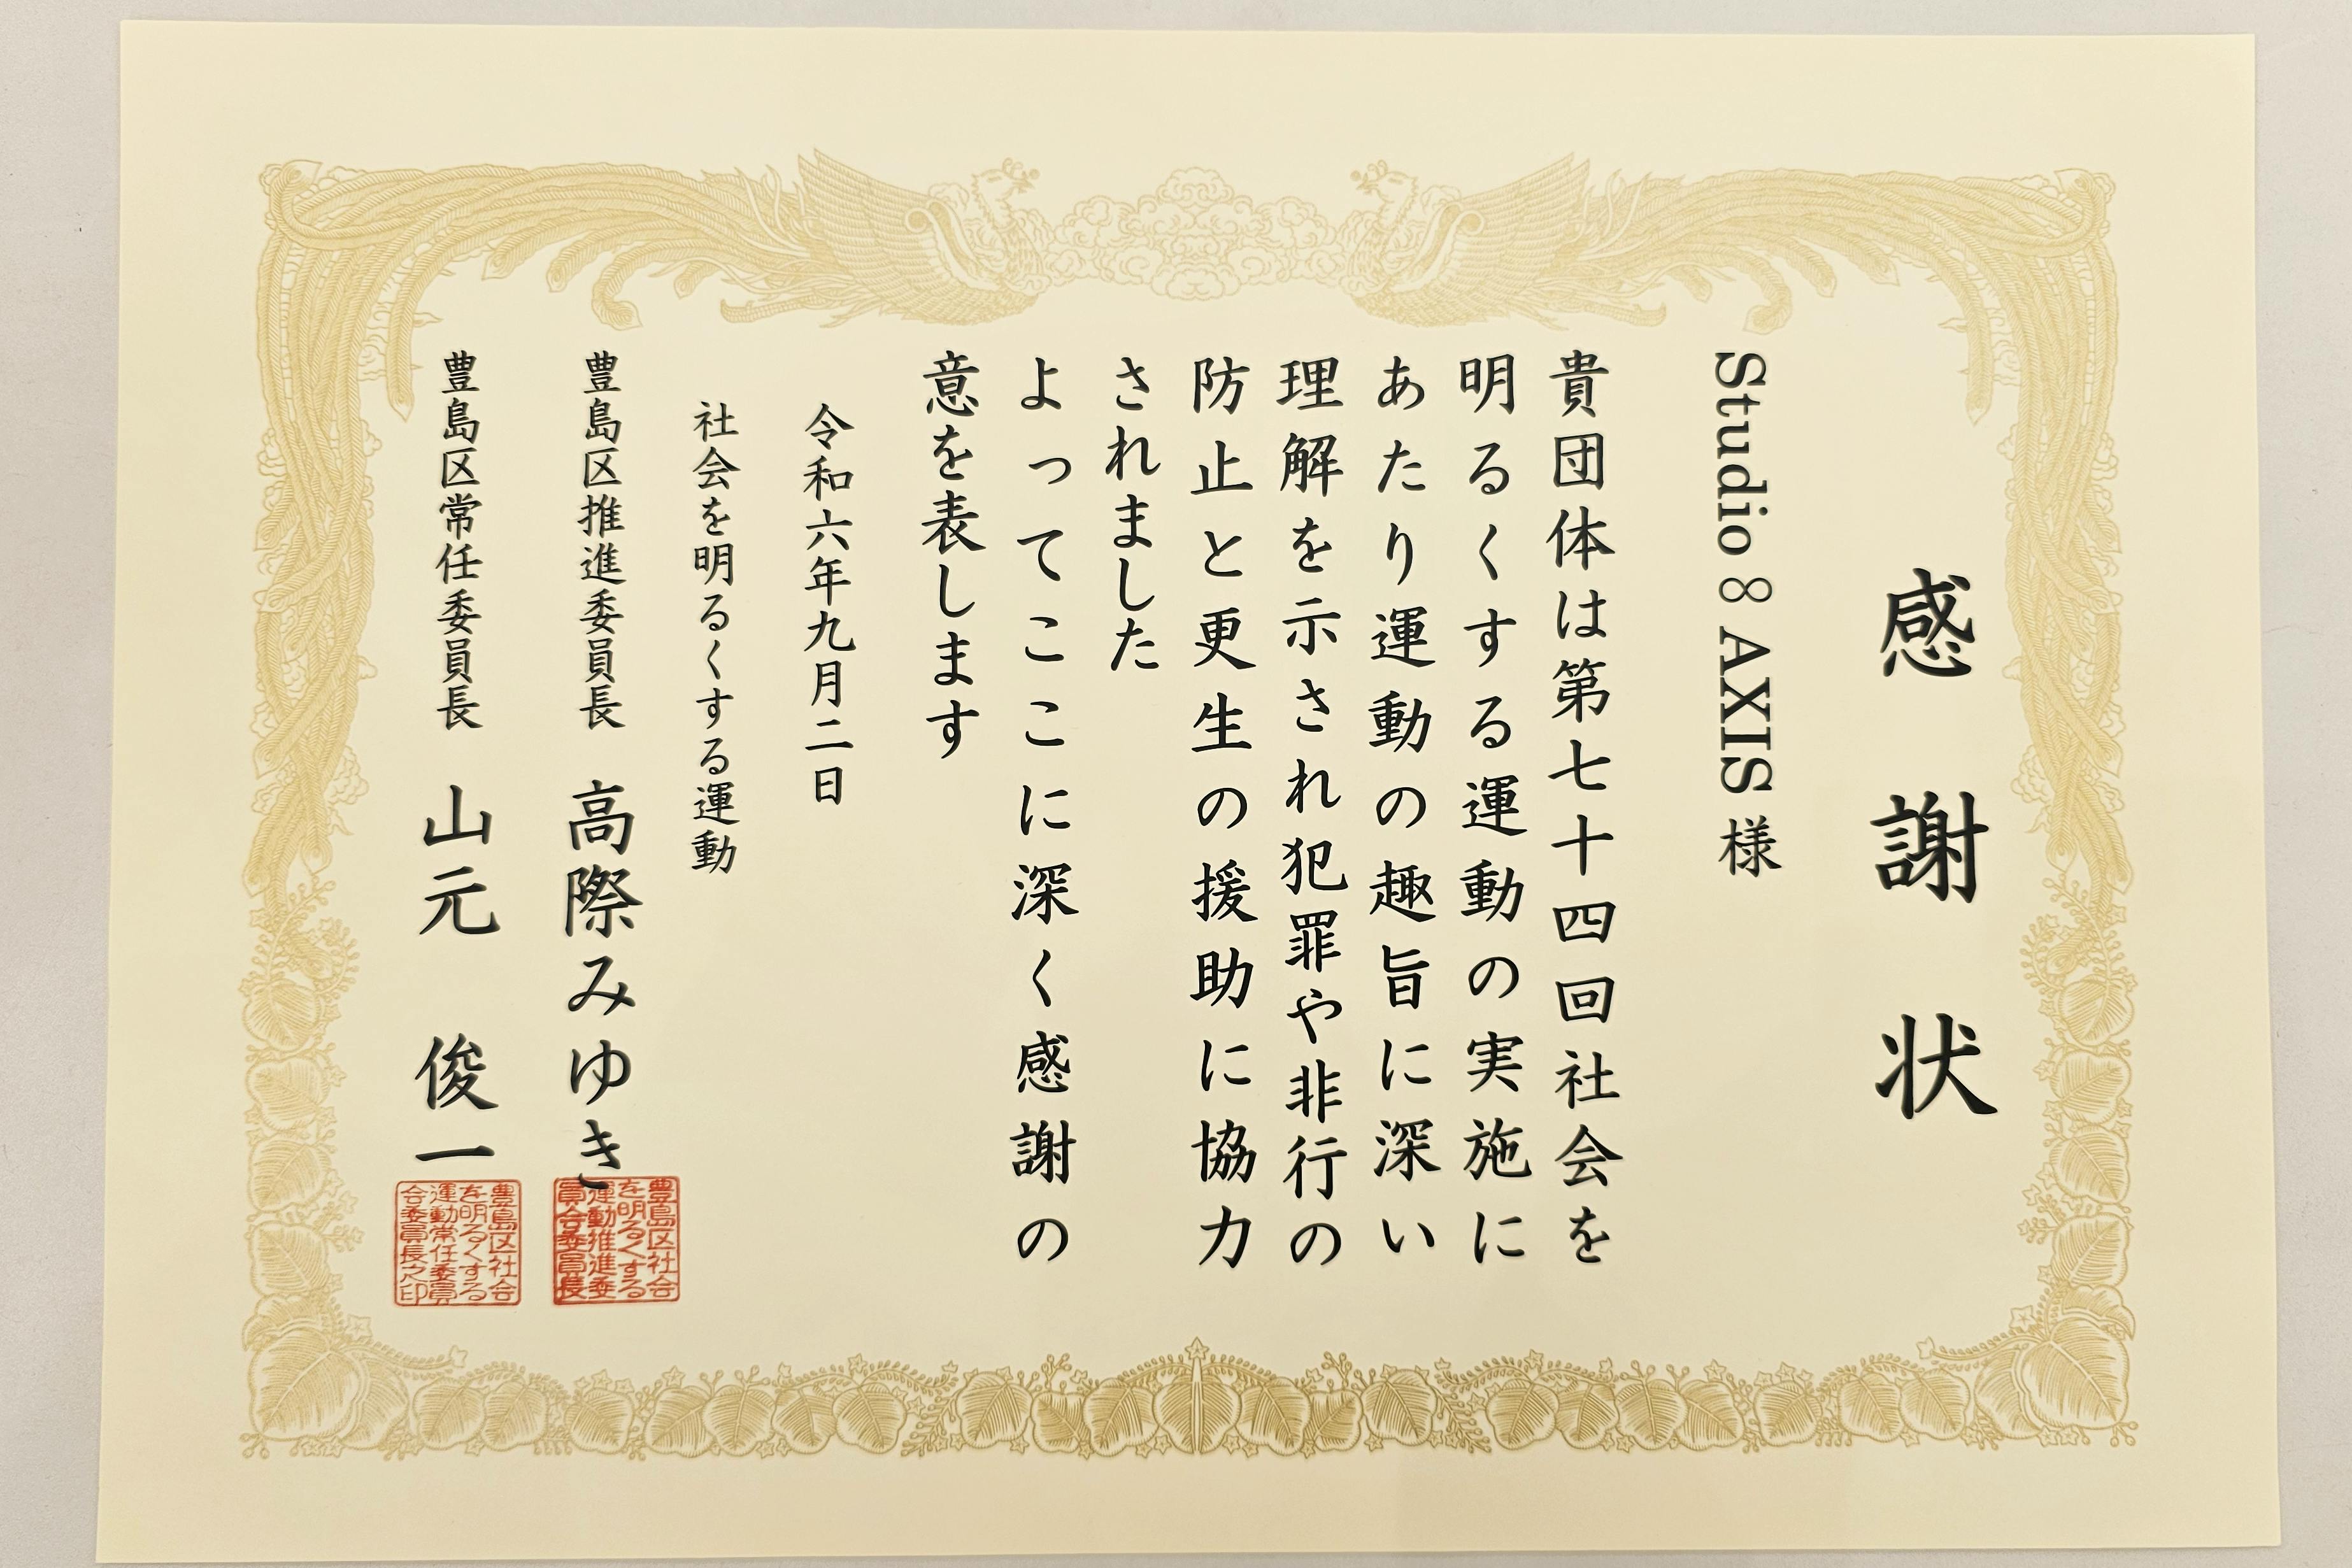 感謝状
Studio ∞ AXIS 様
貴団体は第七十四回社会を
明るくする運動の実施に
あたり運動の趣旨に深い
理解を示され犯罪や非行の
防止と更生の援助に協力
されました
よってここに深く感謝の
意を表します
令和六年九月二日
社会を明るくする運動
豊島区推進委員長 高際みゆき
豊島区社会
を明るくする
運動推進委
員会委員長
豊島区常任委員長 山元 俊一
豊島区社会
を明るくする
運動常任委員
会委員長之印